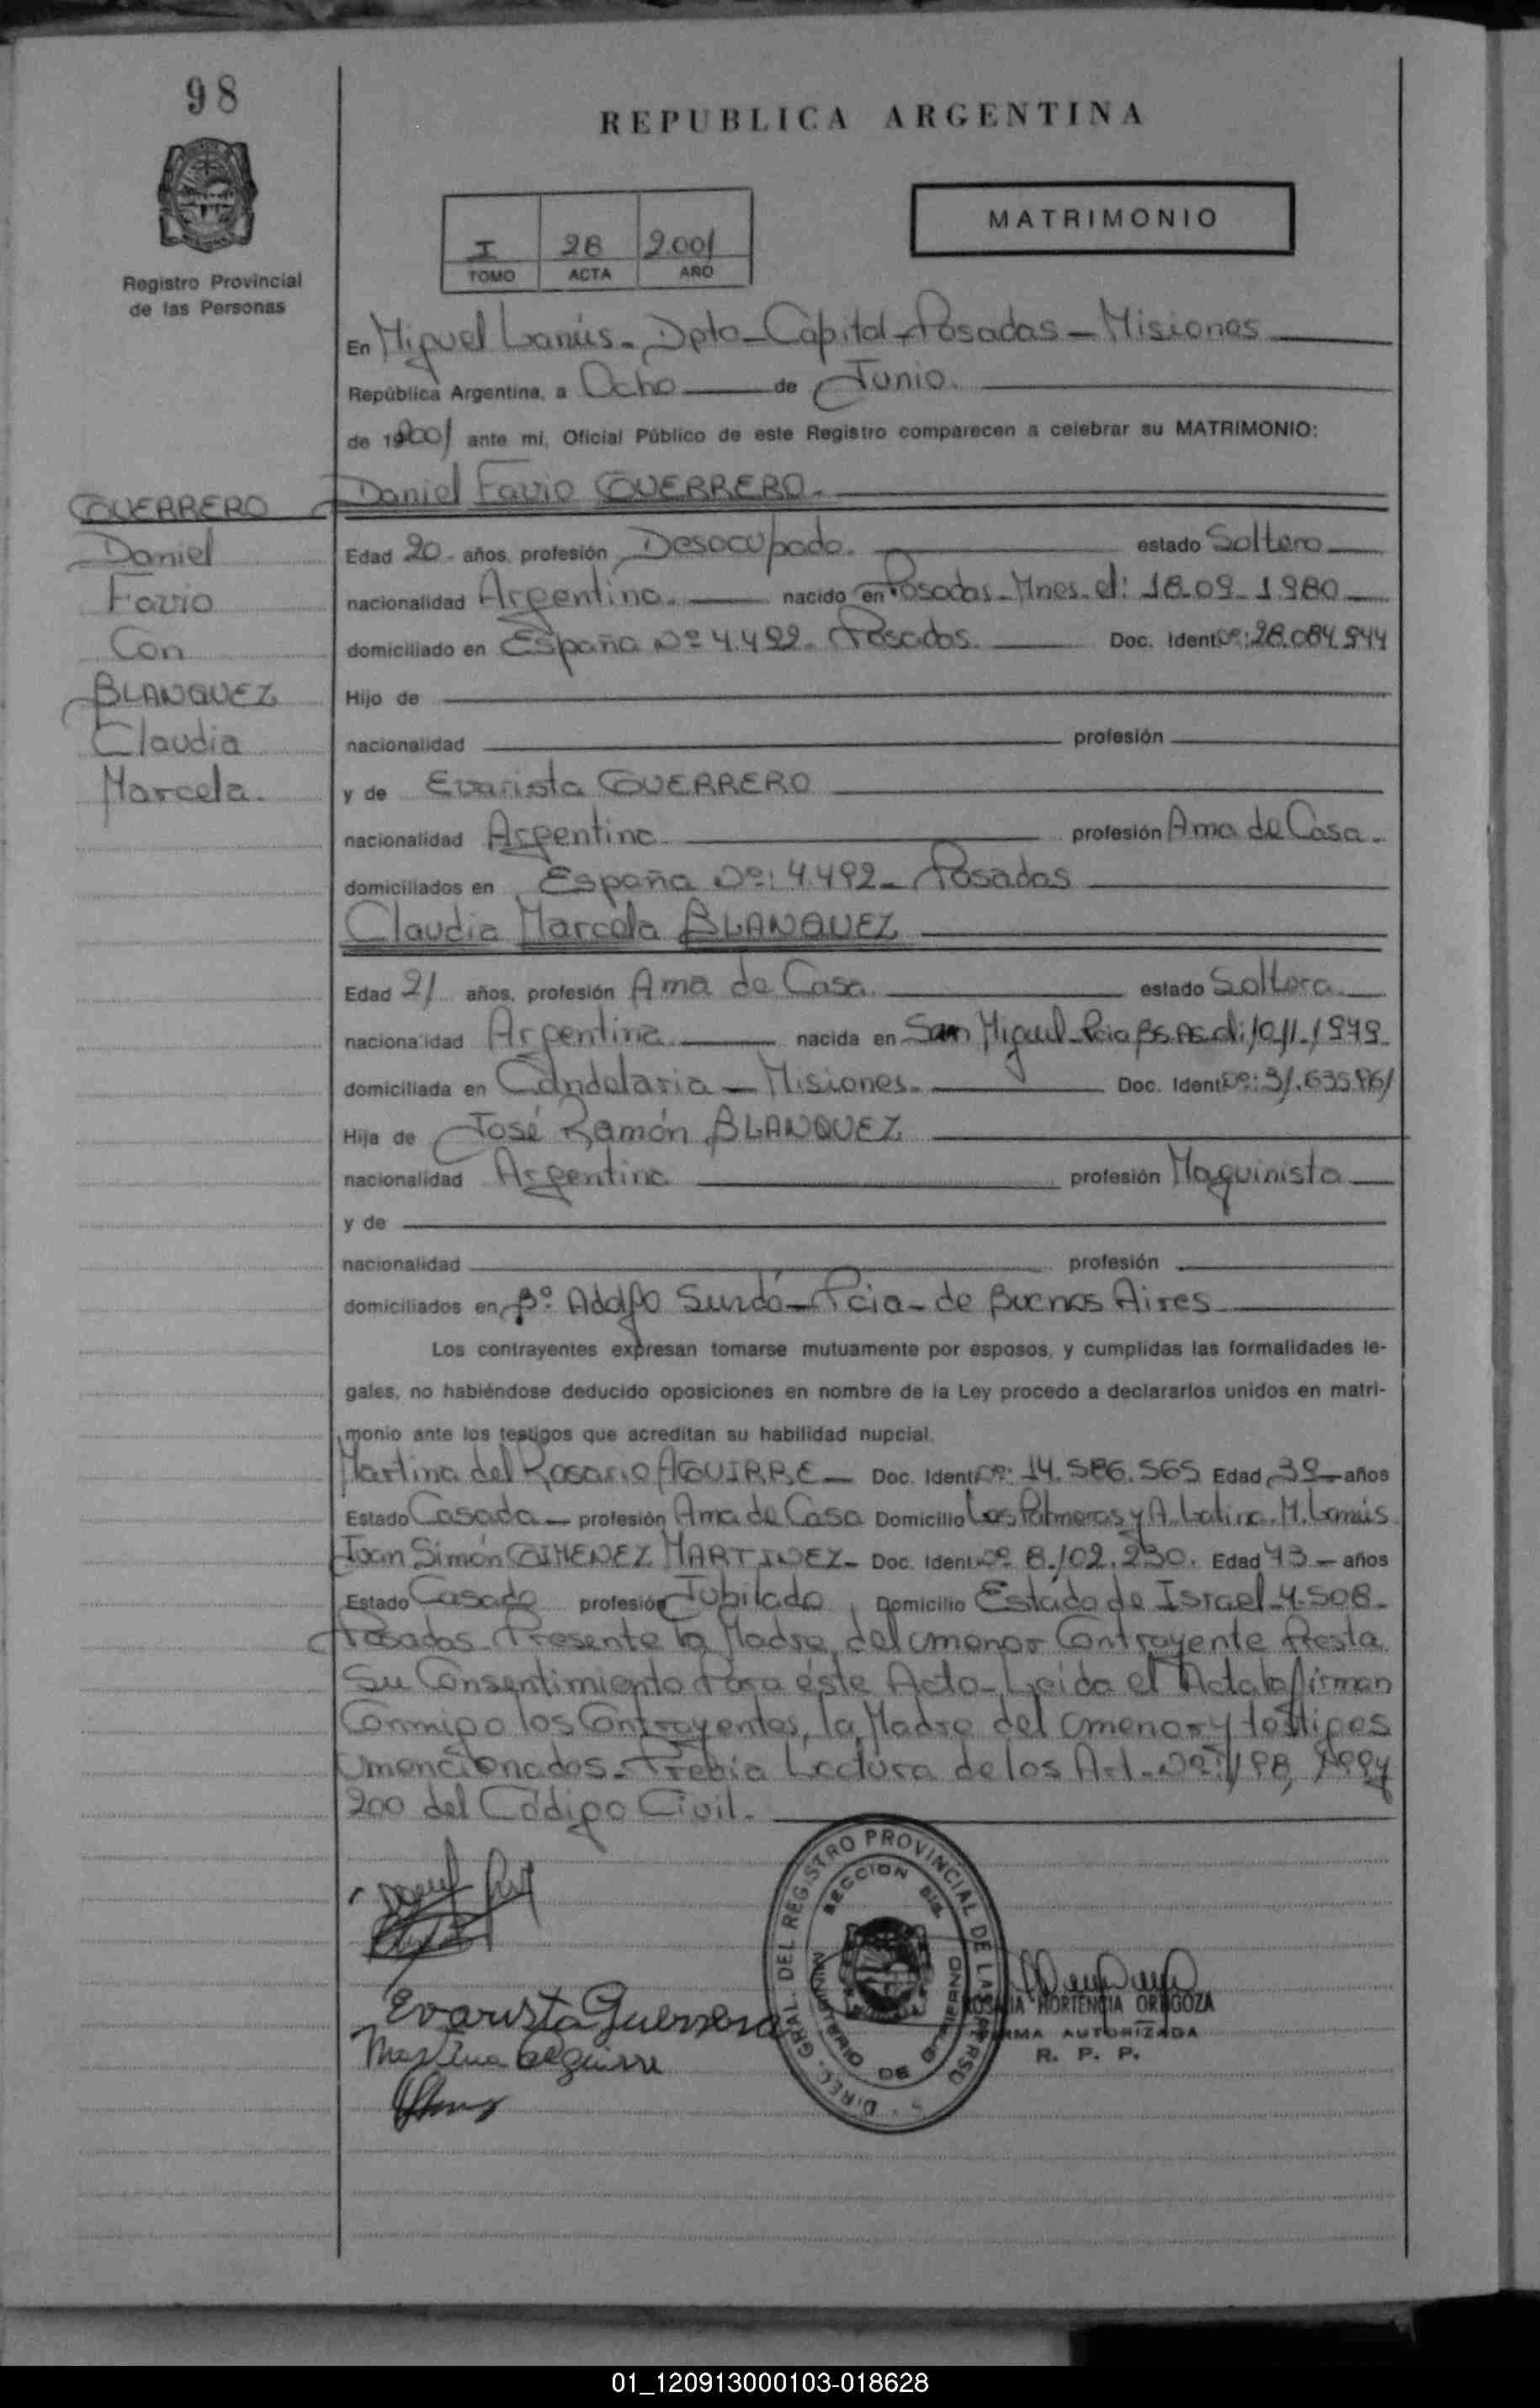 98
REPUBLICA ARGENTINA
MATRIMONIO
I 28 2.001
TOMO ACTA AÑO
Registro Provincial
de las Personas
En Miguel Lanús - Dpto - Capital - Posadas - Misiones
República Argentina, a Ocho de Junio.
de 2001 ante mí, Oficial Público de este Registro comparecen a celebrar su MATRIMONIO:
GUERRERO
Daniel
Favio
Con
BLANQUEZ
Claudia
Marcela.
Daniel Favio GUERRERO.
Edad 20 - años, profesión Desocupado. estado Soltero
nacionalidad Argentina. nacido en Posadas - Mnes. el: 18-09-1.980
domiciliado en España Nº 4.492 - Posadas. Doc. Ident Nº: 28.084.944
Hijo de
nacionalidad profesión
y de Evarista GUERRERO
nacionalidad Argentina profesión Ama de Casa.
domiciliados en España Nº: 4.492 - Posadas
Claudia Marcela BLANQUEZ
Edad 21 años, profesión Ama de Casa. estado Soltera
nacionalidad Argentina nacida en San Miguel - Pcia Bs. As. el: 10-11-1979.
domiciliada en Candelaria - Misiones. Doc. Ident Nº: 31.635.861
Hija de José Ramón BLANQUEZ
nacionalidad Argentina profesión Maquinista
y de
nacionalidad profesión
domiciliados en Bº. Adolfo Surdó - Pcia - de Buenos Aires
Los contrayentes expresan tomarse mutuamente por esposos, y cumplidas las formalidades le-
gales, no habiéndose deducido oposiciones en nombre de la Ley procedo a declararlos unidos en matri-
monio ante los testigos que acreditan su habilidad nupcial.
Martina del Rosario AGUIRRE - Doc. Ident Nº: 14.586.565 Edad 39 - años
Estado Casada - profesión Ama de Casa Domicilio Las Palmeras y A. Latina. M. Lanús
Juan Simón GIMENEZ MARTINEZ - Doc. Ident. Nº 8.102.230. Edad 43 - años
Estado Casado profesión Jubilado Domicilio Estado de Israel - 4.508 -
Posadas - Presente la Madre del menor Contrayente Presta
Su Consentimiento Para éste Acto - Leída el Acta la firman
Conmigo los Contrayentes, la Madre del menor y testigos
mencionados - Previa Lectura de los Art. Nº: 198, 199 y
200 del Código Civil.
Evarista Guerrero
Martina Aguirre
DIREC. GRAL. DEL REGISTRO PROVINCIAL DE LAS PERSO
SECCION
MINISTERIO DE GOBIERNO
ROSALIA HORTENCIA ORTIGOZA
FIRMA AUTORIZADA
R. P. P.
01_120913000103-018628